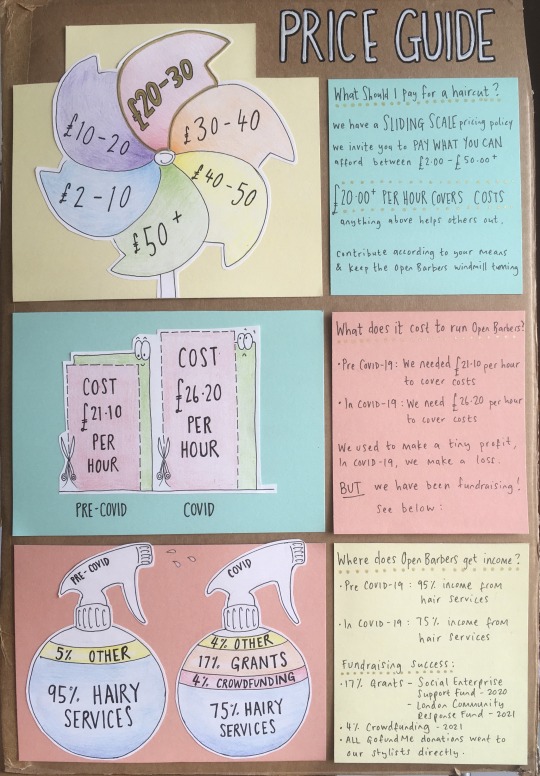 PRICE GUIDE
£20-30
£10-20
£30-40
£2-10
£40-50
£50+
What Should I pay for a haircut?
we have a SLIDING SCALE pricing policy
we invite you to PAY WHAT YOU CAN
afford between £2.00 - £50.00+
£20.00+ PER HOUR COVERS COSTS
anything above helps others out.
Contribute according to your means
& keep the Open Barbers windmill turning
COST
£21.10
PER
HOUR
COST
£26.20
PER
HOUR
PRE-COVID
COVID
What does it cost to run Open Barbers?
• Pre Covid-19: We needed £21.10 per hour
to cover costs
• In Covid-19: We need £26.20 per hour
to cover costs
We used to make a tiny profit,
In COVID-19, we make a loss.
BUT we have been fundraising!
See below:
PRE-COVID
5% OTHER
95% HAIRY
SERVICES
COVID
4% OTHER
17% GRANTS
4% CROWDFUNDING
75% HAIRY
SERVICES
Where does Open Barbers get income?
• Pre Covid-19: 95% income from
hair services
• In Covid-19: 75% income from
hair services
Fundraising Success:
• 17% Grants - Social Enterprise
Support Fund - 2020
- London Community
Response Fund - 2021
• 4% Crowdfunding - 2021
• ALL GofundMe donations went to
our stylists directly.